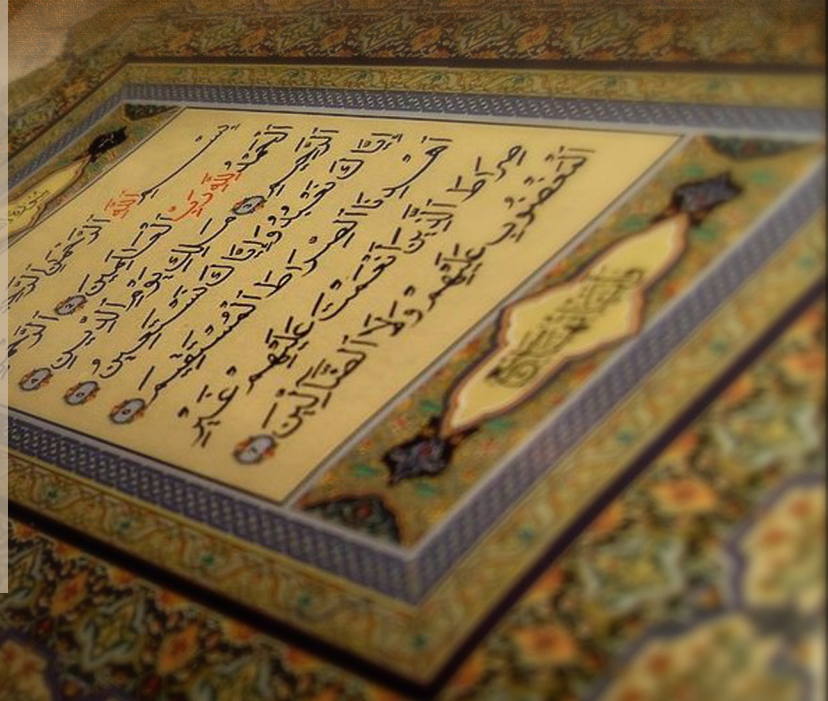 بِسْمِ اللَّهِ الرَّحْمٰنِ الرَّحِيمِ
اَلْحَمْدُ لِلَّهِ رَبِّ الْعَالَمِينَ
الرَّحِيمِ مَالِكِ يَوْمِ الدِّينِ
إِيَّاكَ نَعْبُدُ وَإِيَّاكَ نَسْتَعِينُ
اهْدِنَا الصِّرَاطَ الْمُسْتَقِيمَ
صِرَاطَ الَّذِينَ أَنْعَمْتَ عَلَيْهِمْ غَيْرِ
الْمَغْضُوبِ عَلَيْهِمْ وَلَا الضَّالِّينَ